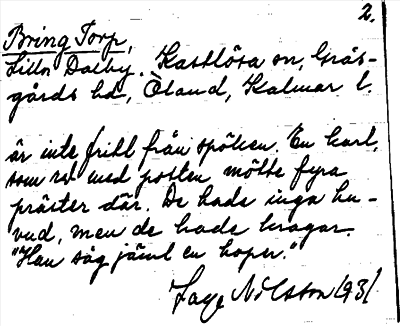 2.
Bring Torp,
Lilla Dalby. Kastlösa sn, Gräs-
gårds hd, Öland, Kalmar l.
är inte fritt från spöken. En karl,
som red med posten mötte fyra
präster där. De hade inga hu-
vud, men de hade kragar.
"Han såg jämt en hoper."
Tage Nilsson 1931